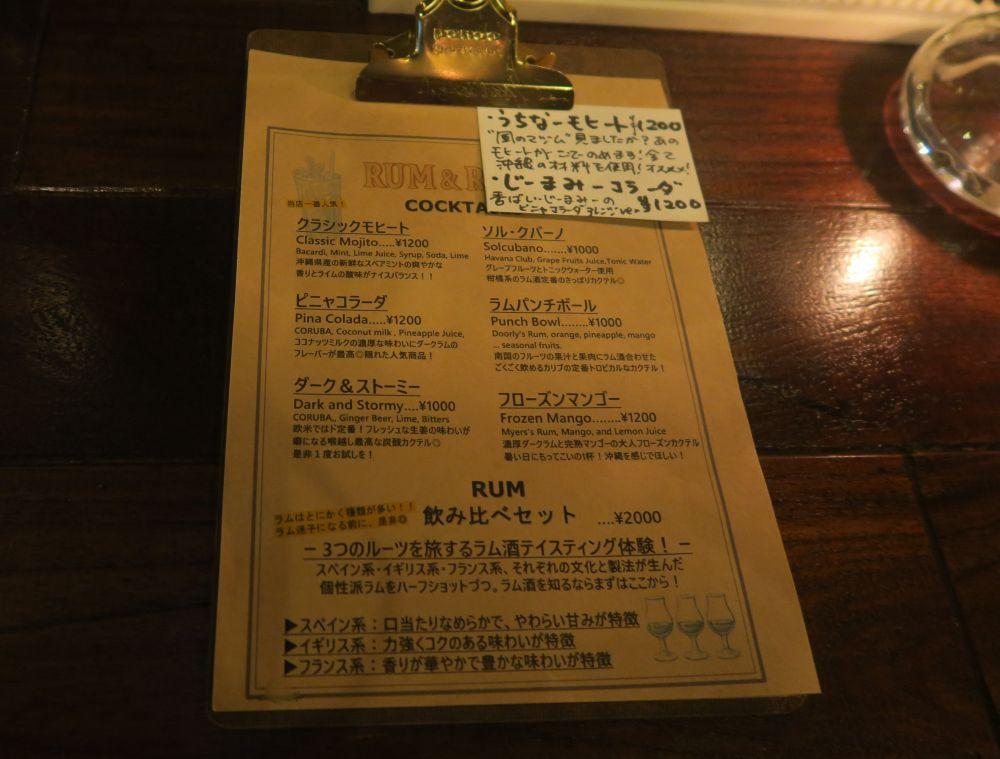 ・うちなーモヒート ¥1200
"風のマジム"見ましたか?あの
モヒートがここでのめます!全て
沖縄の材料を使用!オススメ!
・じーまみーコラーダ
香ばしい・じーまみーの
ピニャコラーダアレンジver ¥1200
RUM & R
当店一番人気!
COCKTA
クラシックモヒート
Classic Mojito.....¥1200
Bacardi, Mint, Lime Juice, Syrup, Soda, Lime
沖縄県産の新鮮なスペアミントの爽やかな
香りとライムの酸味がナイスバランス!!
ピニャコラーダ
Pina Colada.....¥1200
CORUBA, Coconut milk , Pineapple Juice,
ココナッツミルクの濃厚な味わいにダークラムの
フレーバーが最高◎隠れた人気商品!
ダーク&ストーミー
Dark and Stormy....¥1000
CORUBA,, Ginger Beer, Lime, Bitters
欧米ではド定番!フレッシュな生姜の味わいが
癖になる喉越し最高な炭酸カクテル◎
是非1度お試しを!
ソル・クバーノ
Solcubano.......¥1000
Havana Club, Grape Fruits Juice,Tonic Water
グレープフルーツとトニックウォーター使用
柑橘系のラム酒定番のさっぱりカクテル◎
ラムパンチボール
Punch Bowl........¥1000
Doorly's Rum, orange, pineapple, mango
... seasonal fruits.
南国のフルーツの果汁と果肉にラム酒合わせた
ごくごく飲めるカリブの定番トロピカルなカクテル!
フローズンマンゴー
Frozen Mango........¥1200
Myers's Rum, Mango, and Lemon Juice
濃厚ダークラムと完熟マンゴーの大人フローズンカクテル
暑い日にもってこいの1杯!沖縄を感じてほしい!
RUM
ラムはとにかく種類が多い!!
ラム迷子になる前に、是非◎
飲み比べセット ....¥2000
− 3つのルーツを旅するラム酒テイスティング体験! −
スペイン系・イギリス系・フランス系、それぞれの文化と製法が生んだ
個性派ラムをハーフショットづつ。ラム酒を知るならまずはここから!
▶スペイン系:口当たりなめらかで、やわらい甘みが特徴
▶イギリス系:力強くコクのある味わいが特徴
▶フランス系:香りが華やかで豊かな味わいが特徴